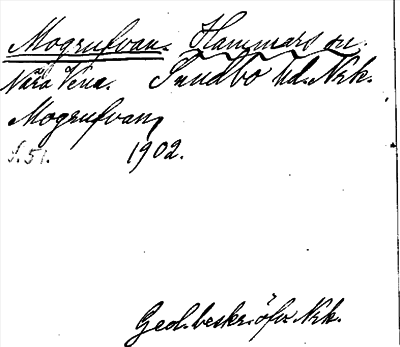 Mogrufvan. Hammars sn.
Nära Vena. Sundbo hd. Nrk.
Mogrufvan,
s. 51. 1902.
Geol. beskr. öfv. Nrk.